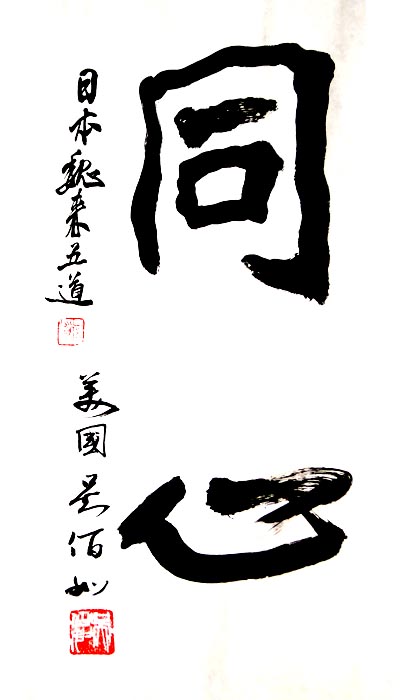 同心
日本魏来五道
美國吴佰如